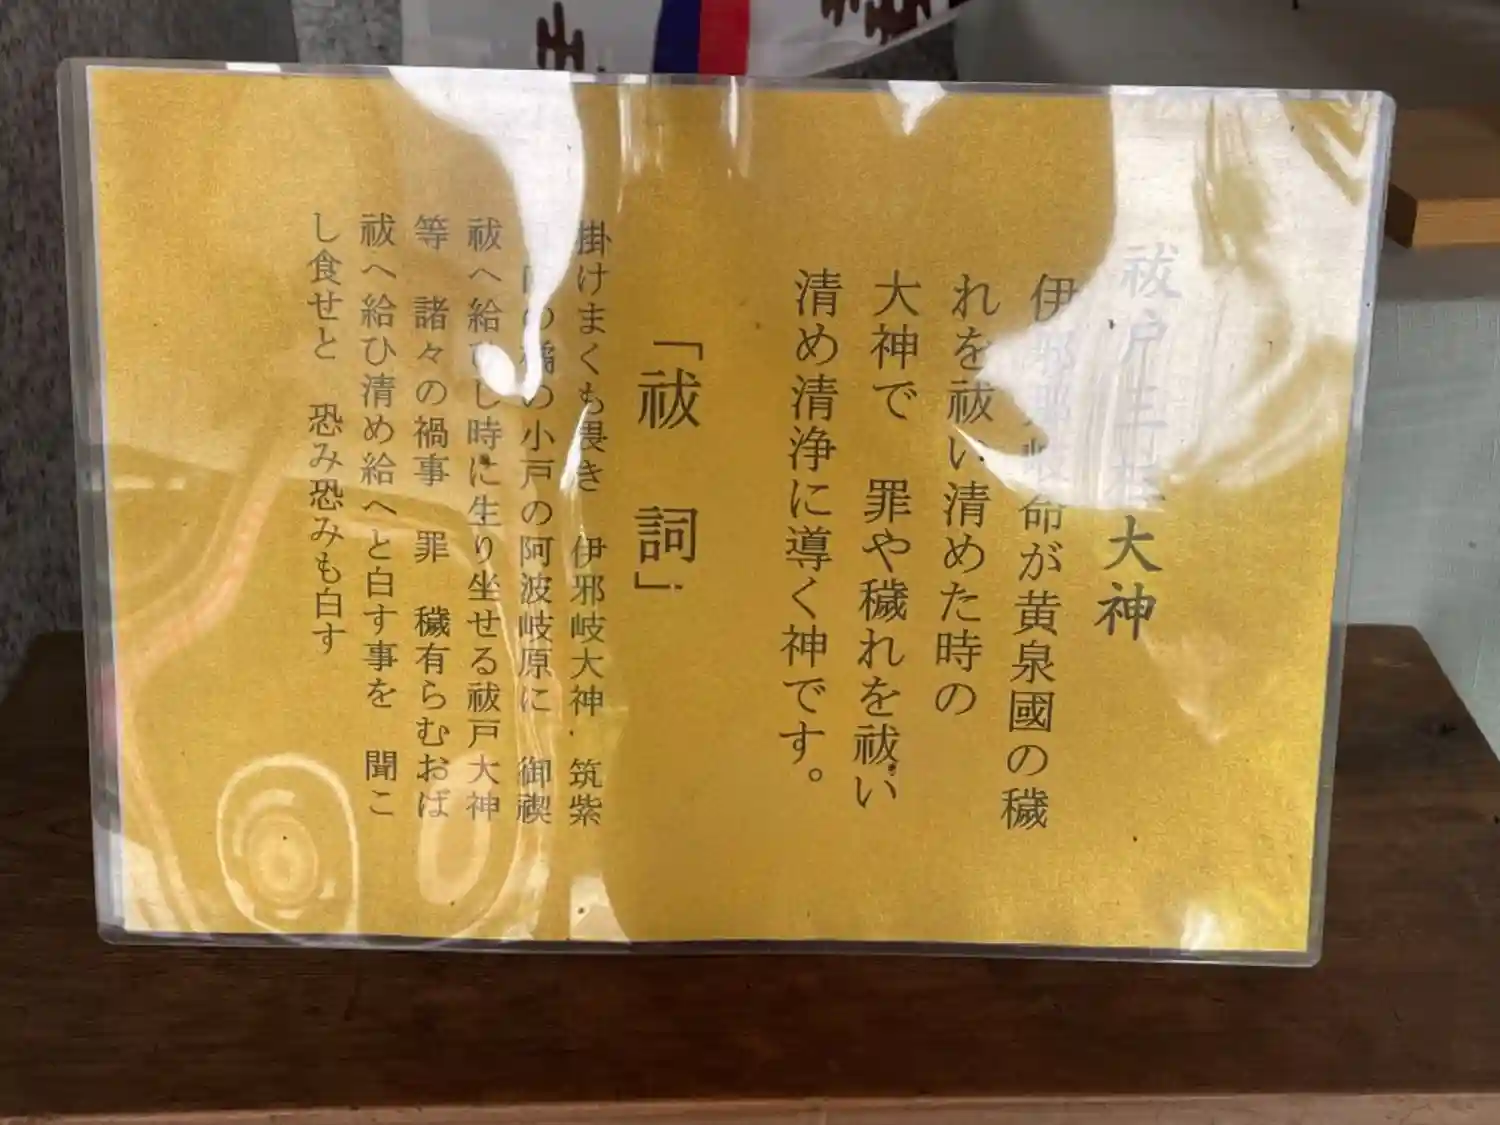 祓戸三柱大神
伊邪那岐命が黄泉國の穢
れを祓い清めた時の
大神で　罪や穢れを祓い
清め清浄に導く神です。
「祓　詞」
掛けまくも畏き　伊邪岐大神　筑紫
の橘の小戸の阿波岐原に　御禊
祓へ給ひし時に生り坐せる祓戸大神
等　諸々の禍事　罪　穢有らむおば
祓へ給ひ清め給へと白す事を　聞こ
し食せと　恐み恐みも白す